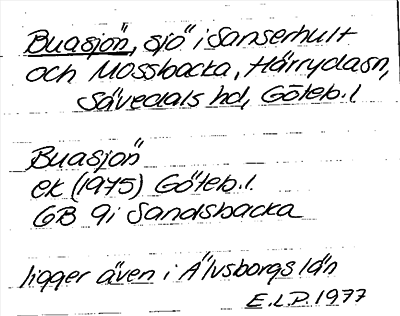 Buasjön, sjö i Sanserhult
och Mossbacka, Härrydasn,
Sävedals hd, Göteb. l
Buasjön
ek (1975) Göteb. l.
GB 9i Sandsbacka
ligger även i Älvsborgs län
E.L.P. 1977